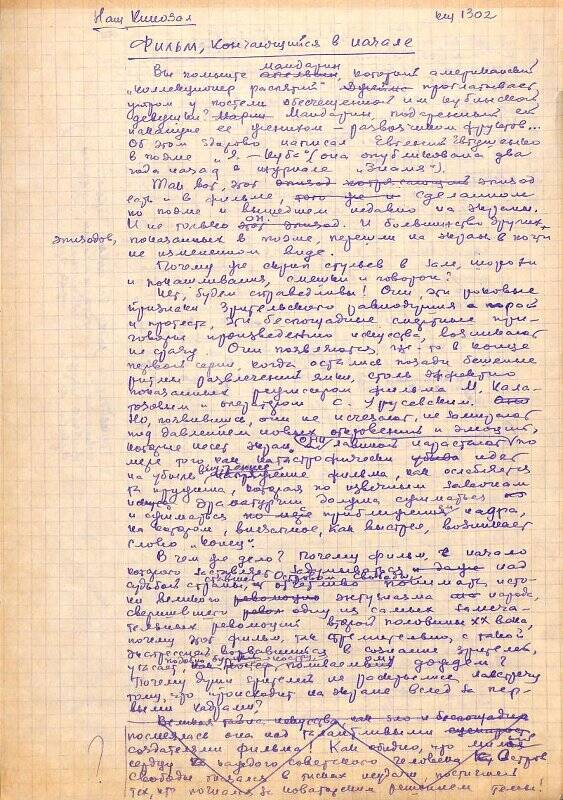 Наш Кинозал кщ 1302
Фильм, кончающийся в начале
Вы помните мандарин, который американский
"коллекционер распятий" проглатывает
утром у постели обесчещенной им кубинской
девушки? Мандарин, подаренный ей
женихом – развозчиком фруктов...
Об этом здорово написал Евгений Евтушенко
в поэме "Я – Куба" (она опубликована два
года назад в журнале "Знамя").
Так вот, этот эпизод
есть и в фильме, сделанном
по поэме и вышедшем недавно на экраны.
И не только он. И большинство других
эпизодов, показанных в поэме, перешли на экран в почти
не измененном виде.
Почему же скрип стульев в зале, шорохи
и покашливания, смешки и говорок?
Нет, будем справедливы! Они эти роковые
признаки зрительского равнодушия а порой
и протеста, эти беспощадные смертные при-
говоры произведению искусства, возникают
не сразу. Они появляются, где-то в конце
первой серии, когда остались позади бешеные
ритмы развлечений янки, столь эффектно
показанных режиссером фильма М. Кала-
тозовым и оператором С. Урусевским.
Но, появившись, они не исчезают, не
под давлением новых откровений и эмоций,
которые несет экран. Они лавиной нарастают по
мере того, как катастрофически идет
на убыль внутреннее напряжение фильма, как ослабляется
та пружина, которая по извечным законам
драматургии должна сжиматься
и сжиматься по мере приближения кадра,
на котором, внезапное, как выстрел, возникает
слово "конец".
В чем же дело? Почему фильм, начало
которого заставляет задумываться над
судьбой страны, ставшей Островом Свободы, отчетливо понимать исто-
ки великого энтузиазма народа,
свершившего одну из самых замеча-
тельных революций второй половины XX века,
почему этот фильм, так стремительно, с такой
экспрессией ворвавшийся в сознание зрителей,
угасает, подобно костру, поливаемому дождем?
Почему души зрителей не раскрылись навстречу
тому, что происходит на экране вслед за пер-
выми кадрами?
Великая тайна искусства как зло и беспощадно
посмеялась она над талантливыми
создателями фильма! Как обидно, что милый
сердцу каждого советского человека Остров
Свободы оказался в тисках неудачи, постигшей
тех, кто погнался за новаторским решением темы!
?